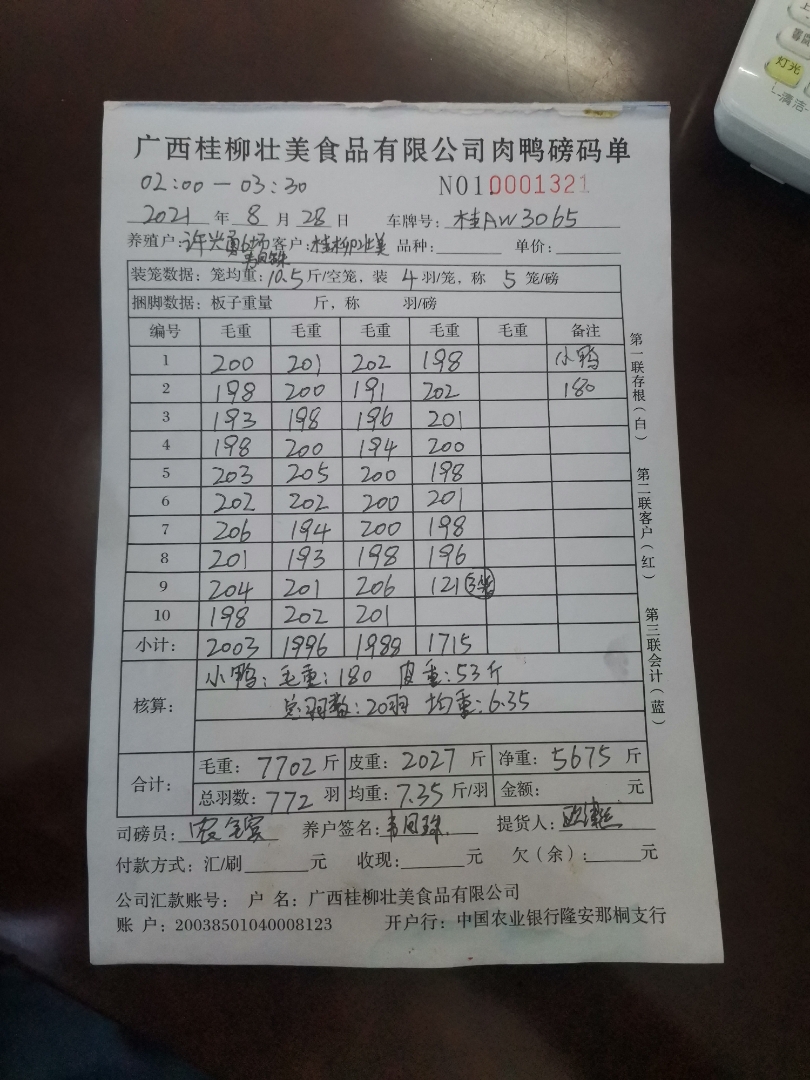 广西桂柳壮美食品有限公司肉鸭磅码单
02:00—03:30 NO1.0001321
2021年8月28日 车牌号:桂AW3065
养殖户:许兴勇6场 客户:桂柳壮美 品种: 单价:
韦月珠
装笼数据:笼均重:10.5斤/空笼,装4羽/笼,称5笼/磅
捆脚数据:板子重量 斤,称 羽/磅
编号 毛重 毛重 毛重 毛重 毛重 备注
1 200 201 202 198 小鸭
2 198 200 191 202 180
3 193 198 196 201
4 198 200 194 200
5 203 205 200 198
6 202 202 200 201
7 206 194 200 198
8 201 193 198 196
9 204 201 206 121 3笼
10 198 202 201
小计: 2003 1996 1988 1715
核算: 小鸭:毛重:180 皮重:53斤
总羽数:20羽 均重:6.35
合计: 毛重:7702斤 皮重:2027斤 净重:5675斤
总羽数:772羽 均重:7.35斤/羽 金额: 元
司磅员: 养户签名:韦月珠 提货人:
付款方式:汇/刷 元 收现: 元 欠(余): 元
公司汇款账号: 户 名:广西桂柳壮美食品有限公司
账 户:20038501040008123 开户行:中国农业银行隆安那桐支行
第一联存根(白)
第二联客户(红)
第三联会计(蓝)
灯光
清洁